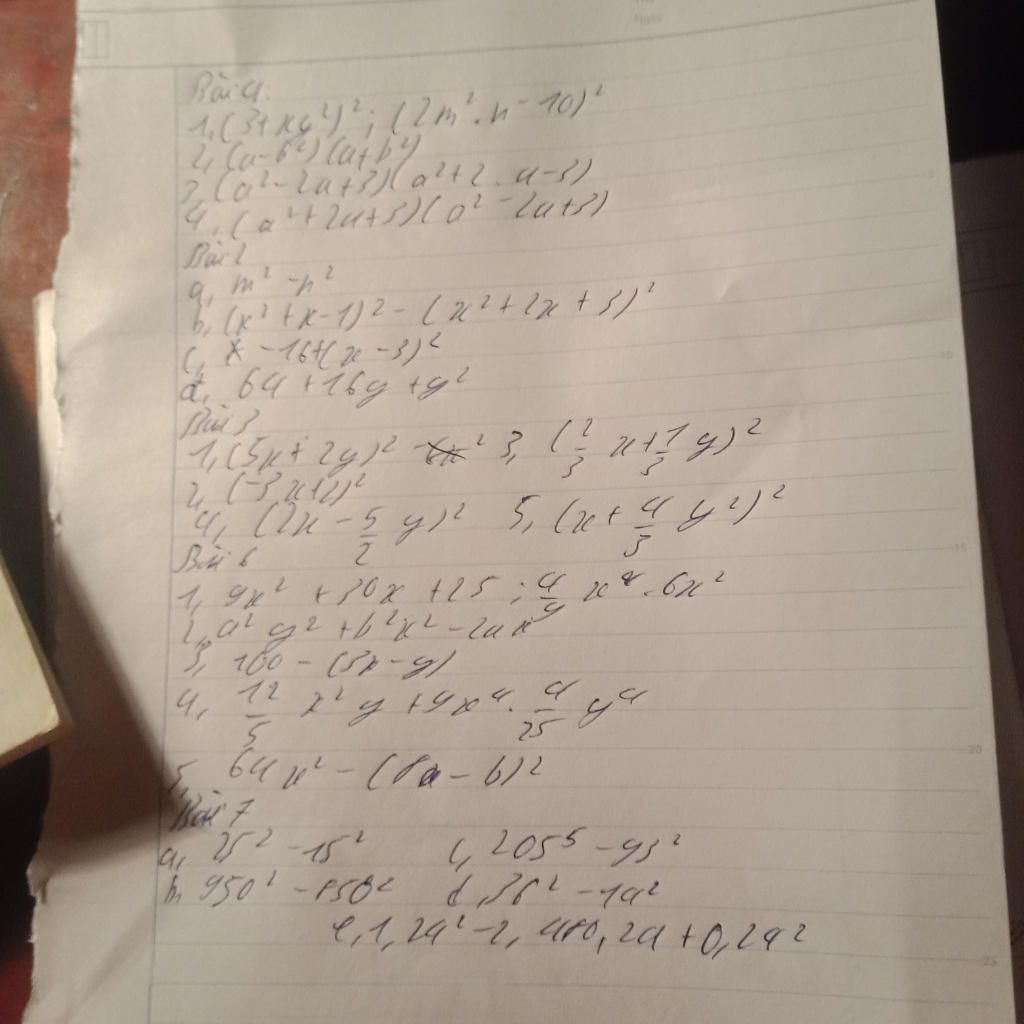 Bài 4.
1, (3+xy²)² ; (2m².n-10)²
2, (a-b²)(a+b²)
3, (a²-2a+3)(a²+2.a-3)
4, (a²+2a+3)(a²-2a+3)
Bài 2
a, m²-n²
b, (x²+x-1)²-(x²+2x+3)²
c, x-16+(x-3)²
d, 64+16y+y²
Bài 3
1, (5x+2y)² 3, (2/3 x+1/3 y)²
2, (-3x+2)²
4, (2x-5/2 y)² 5, (x+4/3 y²)²
Bài 6
1, 9x²+30x+25 ; 4/9 x⁴.6x²
2, a²y²+b²x²-2ax
3, 100-(3x-y)
4, 12/5 x²y+9x⁴.4/25 y⁴
5, 64x²-(8a-b)²
Bài 7
a, 25²-15² c, 205⁵-95²
b, 950²-850² d, 36²-14²
e, 1,24²-2,480,24+0,24²